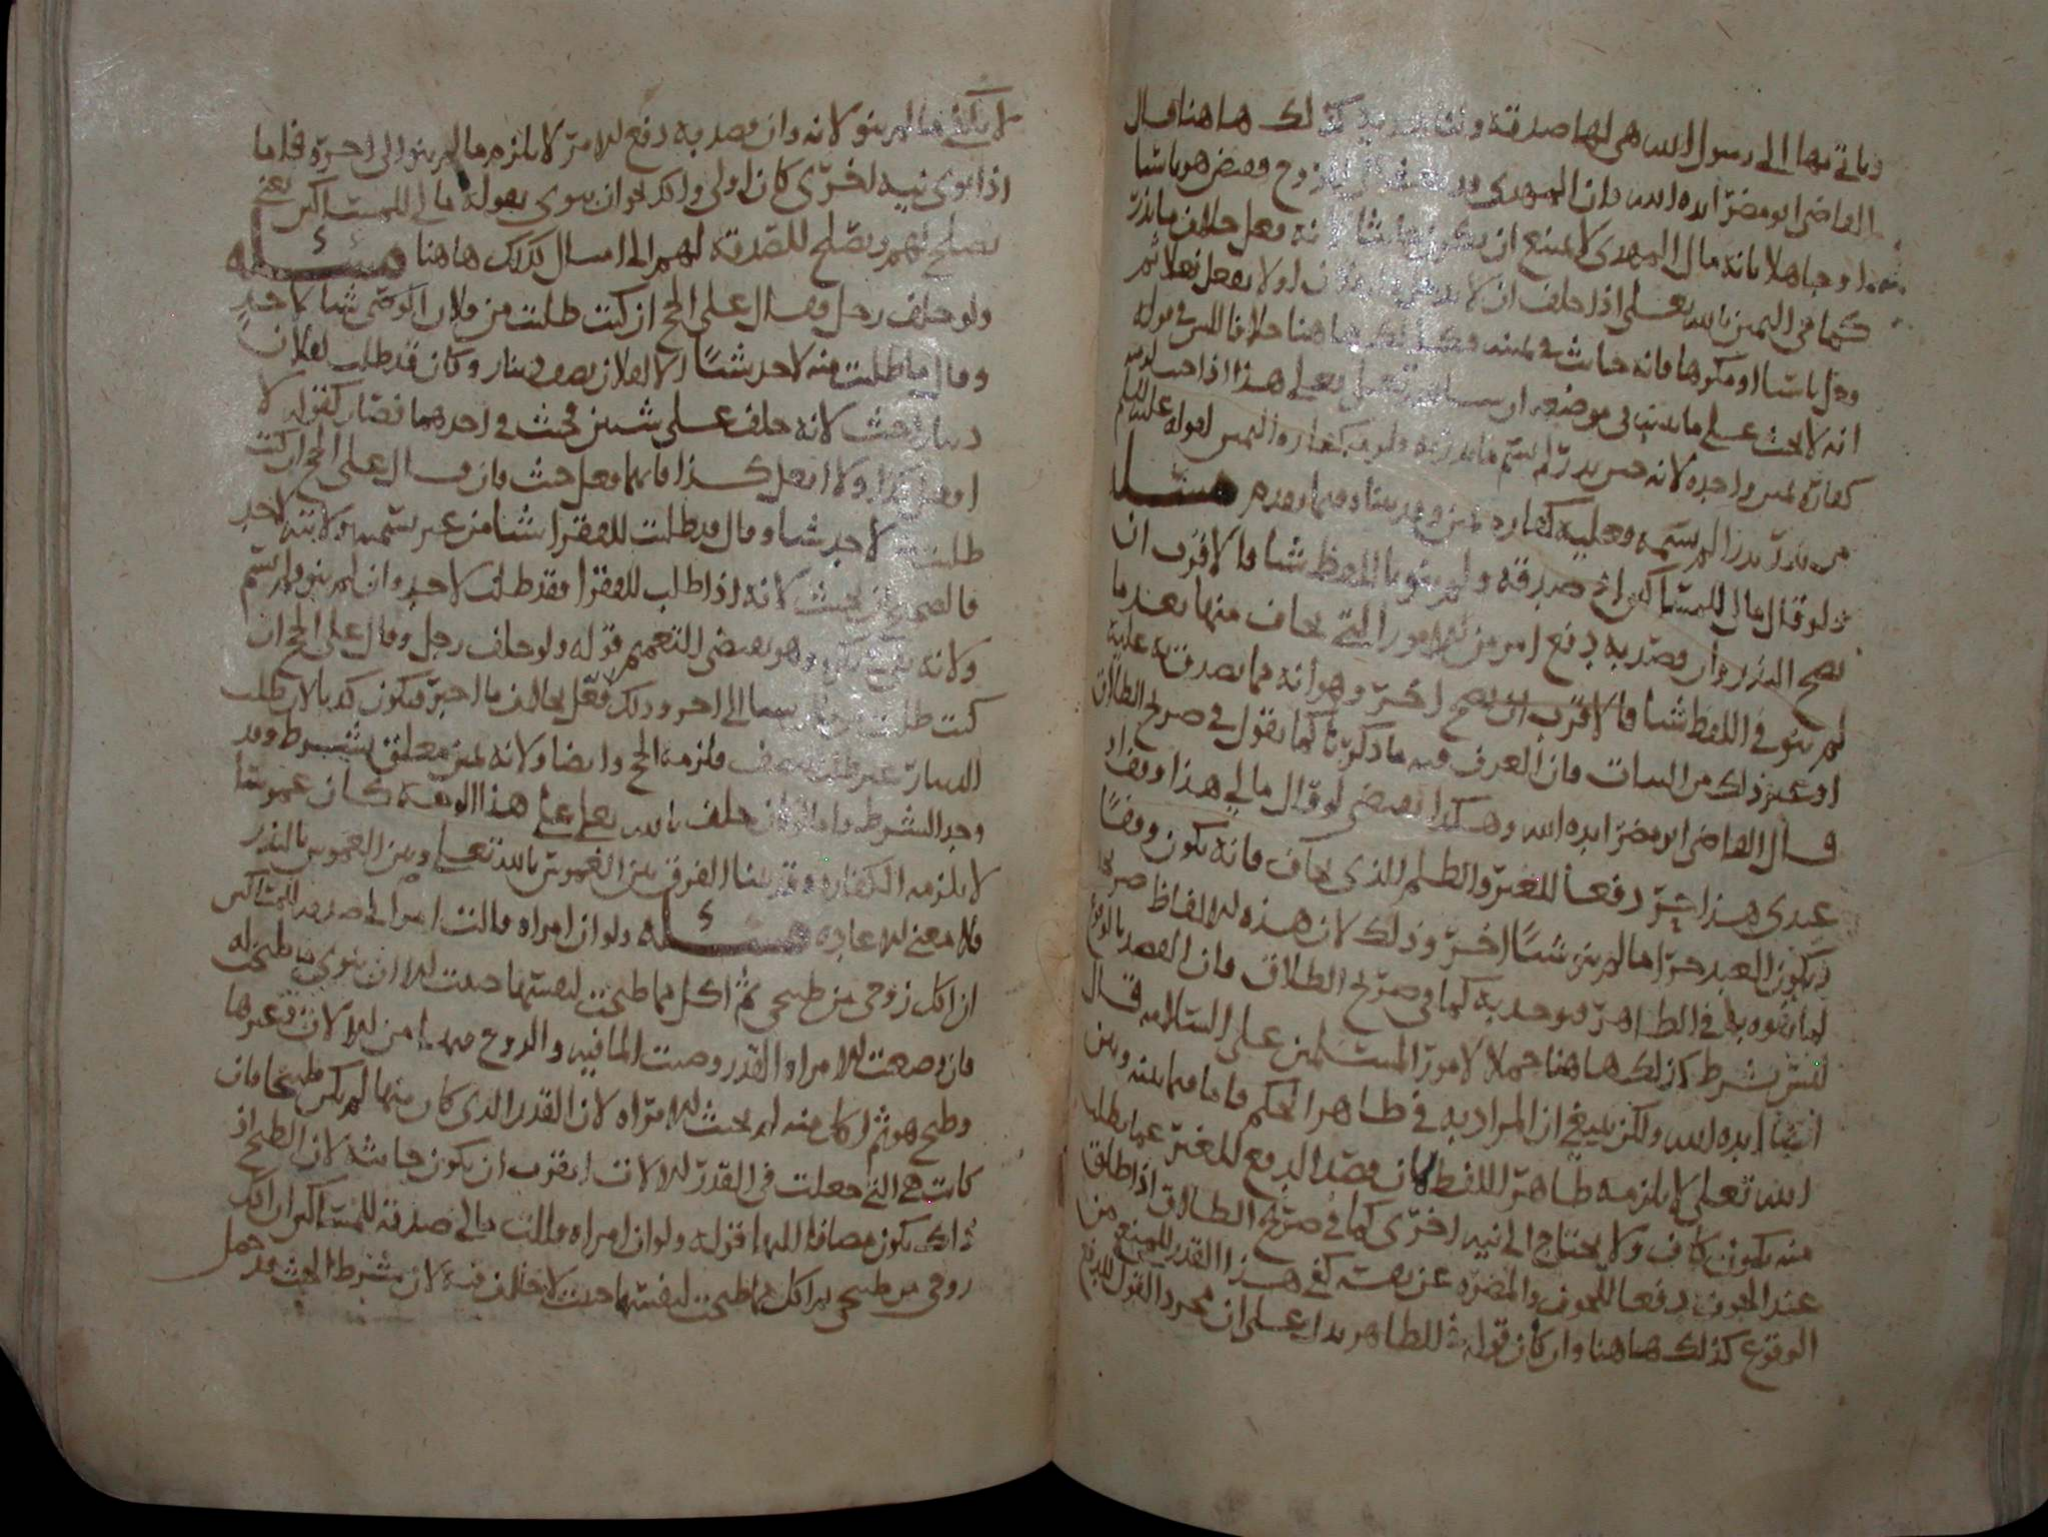 وياتي بها الى رسول الله هي لها صدقة ولنا هدية كذلك هاهنا قال
القاضي ابو مضر ايده الله فان المهدي الزوج وقبض هو ناسيا
او جاهلا بانه مال المهدي لا يمتنع ان يكون حانثا لانه فعل خلاف ما نذر
كما في اليمين بالله تعلى اذا حلف ان لا او لا يفعل فعلا ثم
دخل ناسيا او مكرها فانه حانث في يمينه وكذلك هاهنا خلافا للش في قوله
انه لا يحنث على ما بينا في موضعه ان سا الله تعلى فعلى هذا اذا حنث لزمه
كفارة يمين واحدة لانه حين نذر لم يسم ما نذر به فلزمه كفارة اليمين لقوله عليه السلم
من نذر نذرا لم يسمه فعليه كفارة يمين وقد بيناه فيما تقدم مسئلة
ولو قال مالي للمساكين صدقة ولم ينو باللفظ شيا فالاقرب ان
يصح النذر وان قصد به دفع امر من الامور التي يخاف منها بعد ما
لم ينو في اللفظ شيا فالاقرب ان يصح اخر وهو انه مما يصدق به عليه
او غير ذلك من النيات فان العرف فيه ما ذكرنا كما نقول في صريح الطلاق
قال القاضي ابو مضر ايده الله وهكذا يقتضي لو قال مالي هذا وقف او
عبدي هذا حر دفعا للغير والظلم للذي يخاف فانه يكون وقفا
ويكون العبد حرا ما لم ينو شيئا اخر وذلك لان هذه الالفاظ صريح
لما يفوه به في الظاهر فيوخذ به كما في صريح الطلاق فان القصد بالوقوع
ليس بشرط كذلك هاهنا حملا لامور المسلمين على السلامة قال
ايضا ايده الله ولكن ينبغي ان المراد به في ظاهر الحكم فاما فيما بينه وبين
الله تعلى لا يلزمه ظاهر اللفظ لان قصد الدفع للغير عما يطلب
منه يكون كاف ولا يحتاج الى نية اخرى كما في صريح الطلاق اذا طلق
عند الخوف دفعا للخوف والمضرة عن نفسه كفى هذا القدر للمنع من
الوقوع كذلك هاهنا وان كان قوله في الظاهر يدل على ان مجرد القول للدفع
لا يكفي ما لم ينو لانه وان قصد به دفع الامر لا يلزمه ما لم ينو الى اخره فلما
اذا نوى نية اخرى كان اولى وذلك نحو ان ينوي بقوله مالي للمساكين يعني
يصلح لهم ويصلح للصدقة لهم الى امسال كذلك هاهنا مسئلة
ولو حلف رجل وقال علي الحج ان كنت طلبت من فلان شيا لاحد
وقال ما طلبت منه لاحد شيئا الا لفلان نصف دينار وكان قد طلب لفلان
دينارا حنث لانه حلف على شيئين فحنث في احدهما فصار كقوله لا
افعل كذا ولا افعل كذا فايهما فعل حنث فان قال علي الحج ان كنت
طلبت لاحد شيا وقال قد طلبت للفقرا شيا من غير تسمية ولا نية لاحد
فالصحيح ان يحنث لانه اذا طلب للفقرا فقد طلب لاحد وان لم ينو ولم يسم
ولانه وهو يقتضي التعميم قوله ولو حلف رجل وقال علي الحج ان
كنت طلبت شيا الى اخره وذلك فعل يخالف ما اخبر فيكون كذبا لان طلب
الدينار غير طلب نصف فلزمه الحج وايضا ولانه يمين معلق بشرط وقد
وجد الشرط واما لو كان حلف بالله تعلى على هذا الوصف كان غموسا
لا يلزمه الكفارة وقد بينا الفرق بين الغموس بالله تعلى وبين الغموس بالنذر
فلا معنى للاعادة مسئلة ولو ان امراة قالت امر الى صدقة للمساكين
ان اكل زوجي من طبيخي ثم اكل مما طبخت لنفسها حنثت الا ان ينوي ما طبخت له
فان وضعت الامراة القدر وصبت الما فيه والزوج من الالات وغيرها
وطبخ هو ثم اكل منه لم يحنث الامراة لان القدر الذي كان منها لم يكن طبيخا فان
كانت هي التي جعلت في القدر الالات اقرب ان يكون حانثة لان الطبخ اذ
ذاك يكون مضافا اليها قوله ولو ان امراة قالت مالي صدقة للمساكين ان اكل
زوجي من طبيخي فاكل مما طبخت لنفسها حنثت لا خلاف فيه لان شرط الحنث قد حصل